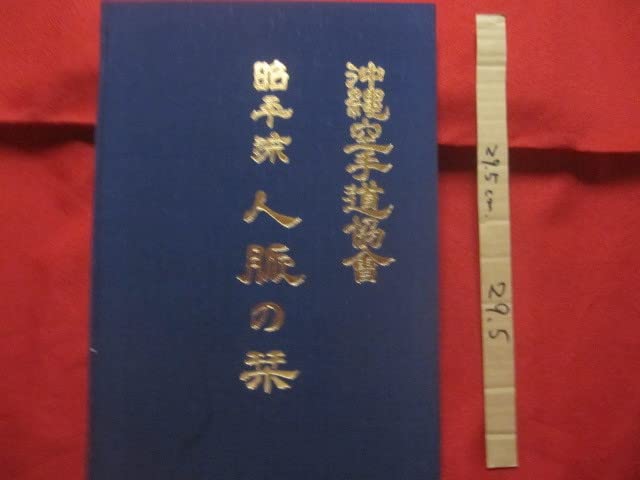 沖縄空手道協會
昭平流 人脈の栞
29.5cm.
29.5